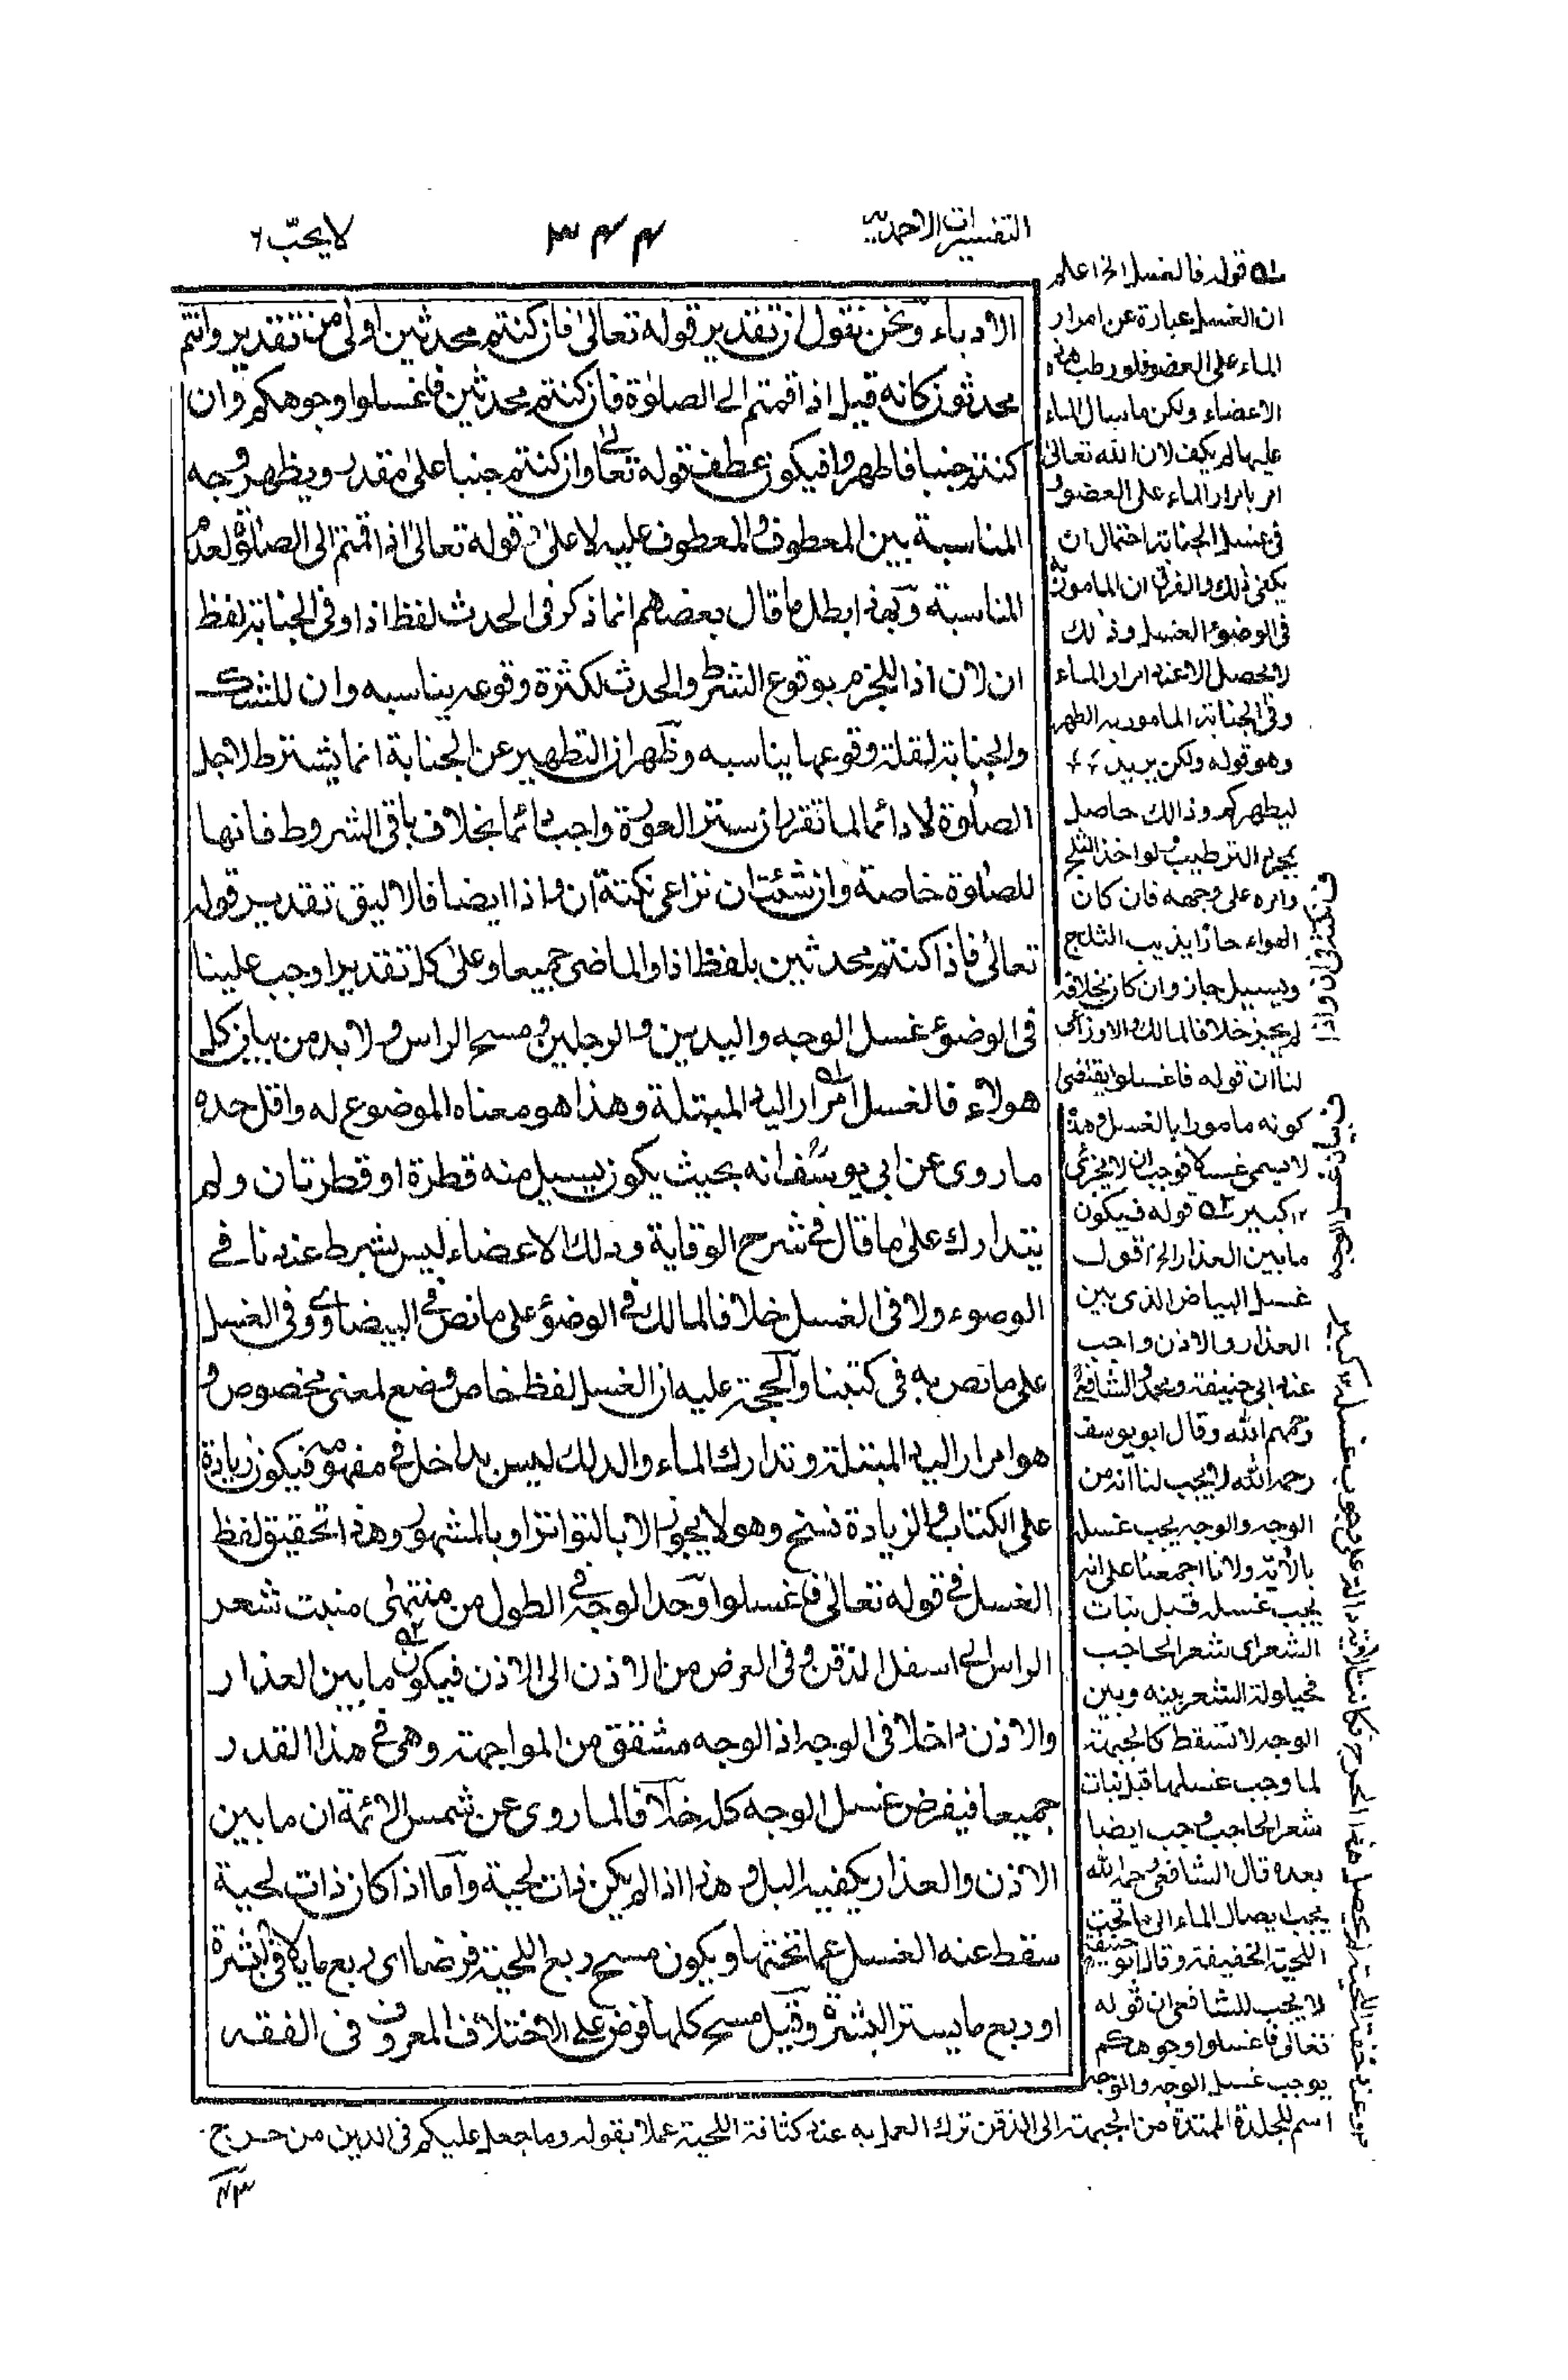 التفسيرات الاحمدية
٣٤٤
لا يحب ٦
الادباء ونحن نقول ان تقدير قوله تعالى فان كنتم محدثين اولى من تقدير وانتم
محدثون كانه قيل اذا قمتم الى الصلوة فان كنتم محدثين فاغسلوا وجوهكم وان
كنتم جنبا فاطهروا فيكون عطف قوله تعالى وان كنتم جنبا على مقدر ويظهر وجه
المناسبة بين المعطوف والمعطوف عليه لا على قوله تعالى اذا قمتم الى الصلوة لعدم
المناسبة وبهذا بطل ما قال بعضهم انما ذكر فى الحدث لفظ اذا وفى الجنابة لفظ
ان لان اذا للجزم بوقوع الشرط والحدث لكثرة وقوعه يناسبه وان للشك
والجنابة لقلة وقوعها يناسبه وظهر ان التطهير عن الجنابة انما يشترط لاجل
الصلوة لا دائما لما تقرر ان ستر العورة واجب دائما بخلاف باقى الشروط فانها
للصلوة خاصة وان شئت ان تراعى نكتة ان واذا ايضا فالاليق تقدير قوله
تعالى فاذا كنتم محدثين بلفظ اذا والماضى جميعا وعلى كل تقدير اوجب علينا
فى الوضوء غسل الوجه واليدين والرجلين ومسح الراس ولا بد من بيان كل
هولاء فالغسل امرار اليد المبتلة وهذا هو معناه الموضوع له واقل حده
ما روى عن ابى يوسف انه بحيث يكون يسيل منه قطرة او قطرتان ولم
يتدارك على ما قال فى شرح الوقاية ودلك الاعضاء ليس بشرط عندنا فى
الوضوء ولا فى الغسل خلافا لمالك فى الوضوء على ما نص فى البيضاوى وفى الغسل
على ما نص به فى كتبنا والحجة عليه ان الغسل لفظ خاص وضع لمعنى مخصوص و
هو امرار اليد المبتلة وتدارك الماء والدلك ليس بداخل فى مفهومه فيكون زيادة
على الكتاب والزيادة نسخ وهو لا يجوز الا بالتواتر او بالمشهور وهذا تحقيق لفظ
الغسل فى قوله تعالى فاغسلوا وحد الوجه فى الطول من منتهى منبت شعر
الراس الى اسفل الذقن وفى العرض من الاذن الى الاذن فيكون ما بين العذار
والاذن داخلا فى الوجه اذ الوجه مشتق من المواجهة وهى فى هذا القدر
جميعا فيفرض غسل الوجه كله خلافا لما روى عن شمس الائمة ان ما بين
الاذن والعذار يكفيه البل و هذا اذا لم يكن ذات لحية واما اذا كان ذات لحية
سقط عنه الغسل عما تحتها ويكون مسح ربع اللحية فرضا اى ربع ما يلاقى البشرة
او ربع ما يستر البشرة وقيل مسح كلها فرض على الاختلاف المعروف فى الفقه
قوله فالغسل الخ اعلم
ان الغسل عبارة عن امرار
الماء على العضو فلو رطب هذه
الاعضاء ولكن ما سال الماء
عليها لم يكف لان الله تعالى
امر بامرار الماء على العضو و
فى غسل الجنابة احتمال ان
يكفى ذلك والفرق ان المامور به
فى الوضوء الغسل وذلك
لا يحصل الا عند امرار الماء
وفى الجنابة المامور به الطهر
وهو قوله ولكن يريد
ليطهركم وذالك حاصل
بمجرد الترطيب ولو اخذ الثلج
وامره على وجهه فان كان
الهواء حارا يذيب الثلج
ويسيل جاز وان كان بخلافه
لم يجز خلافا لمالك والاوزاعى
لنا ان قوله فاغسلوا يقتضى
كونه مامورا بالغسل وهذا
لا يسمى غسلا فوجب ان لا يجزئ
١٢ كبير قوله فيكون
ما بين العذار الخ اقول
غسل البياض الذى بين
العذار والاذن واجب
عند ابى حنيفة ومحمد والشافعى
رحمهم الله وقال ابو يوسف
رحمه الله لا يجب لنا انه من
الوجه والوجه يجب غسله
بالآية ولانا اجمعنا على انه
يجب غسله قبل نبات
الشعر اى شعر الحاجب
فحيلولة الشعر بينه وبين
الوجه لا تسقط كالجبهة
لما وجب غسلها قبل نبات
شعر الحاجب وجب ايضا
بعده قال الشافعى رحمه الله
يجب ايصال الماء الى ما تحت
اللحية الخفيفة وقال ابو حنيفة
لا يجب للشافعى ان قوله
تعالى فاغسلوا وجوهكم
يوجب غسل الوجه والوجه
اسم للجلدة الممتدة من الجبهة الى الذقن ترك العمل به عند كثافة اللحية عملا بقوله وما جعل عليكم فى الدين من حرج
وعند خفة اللحية لم يحصل هذا الحرج فكانت الآية دالة على وجوب غسله ١٢ كبير